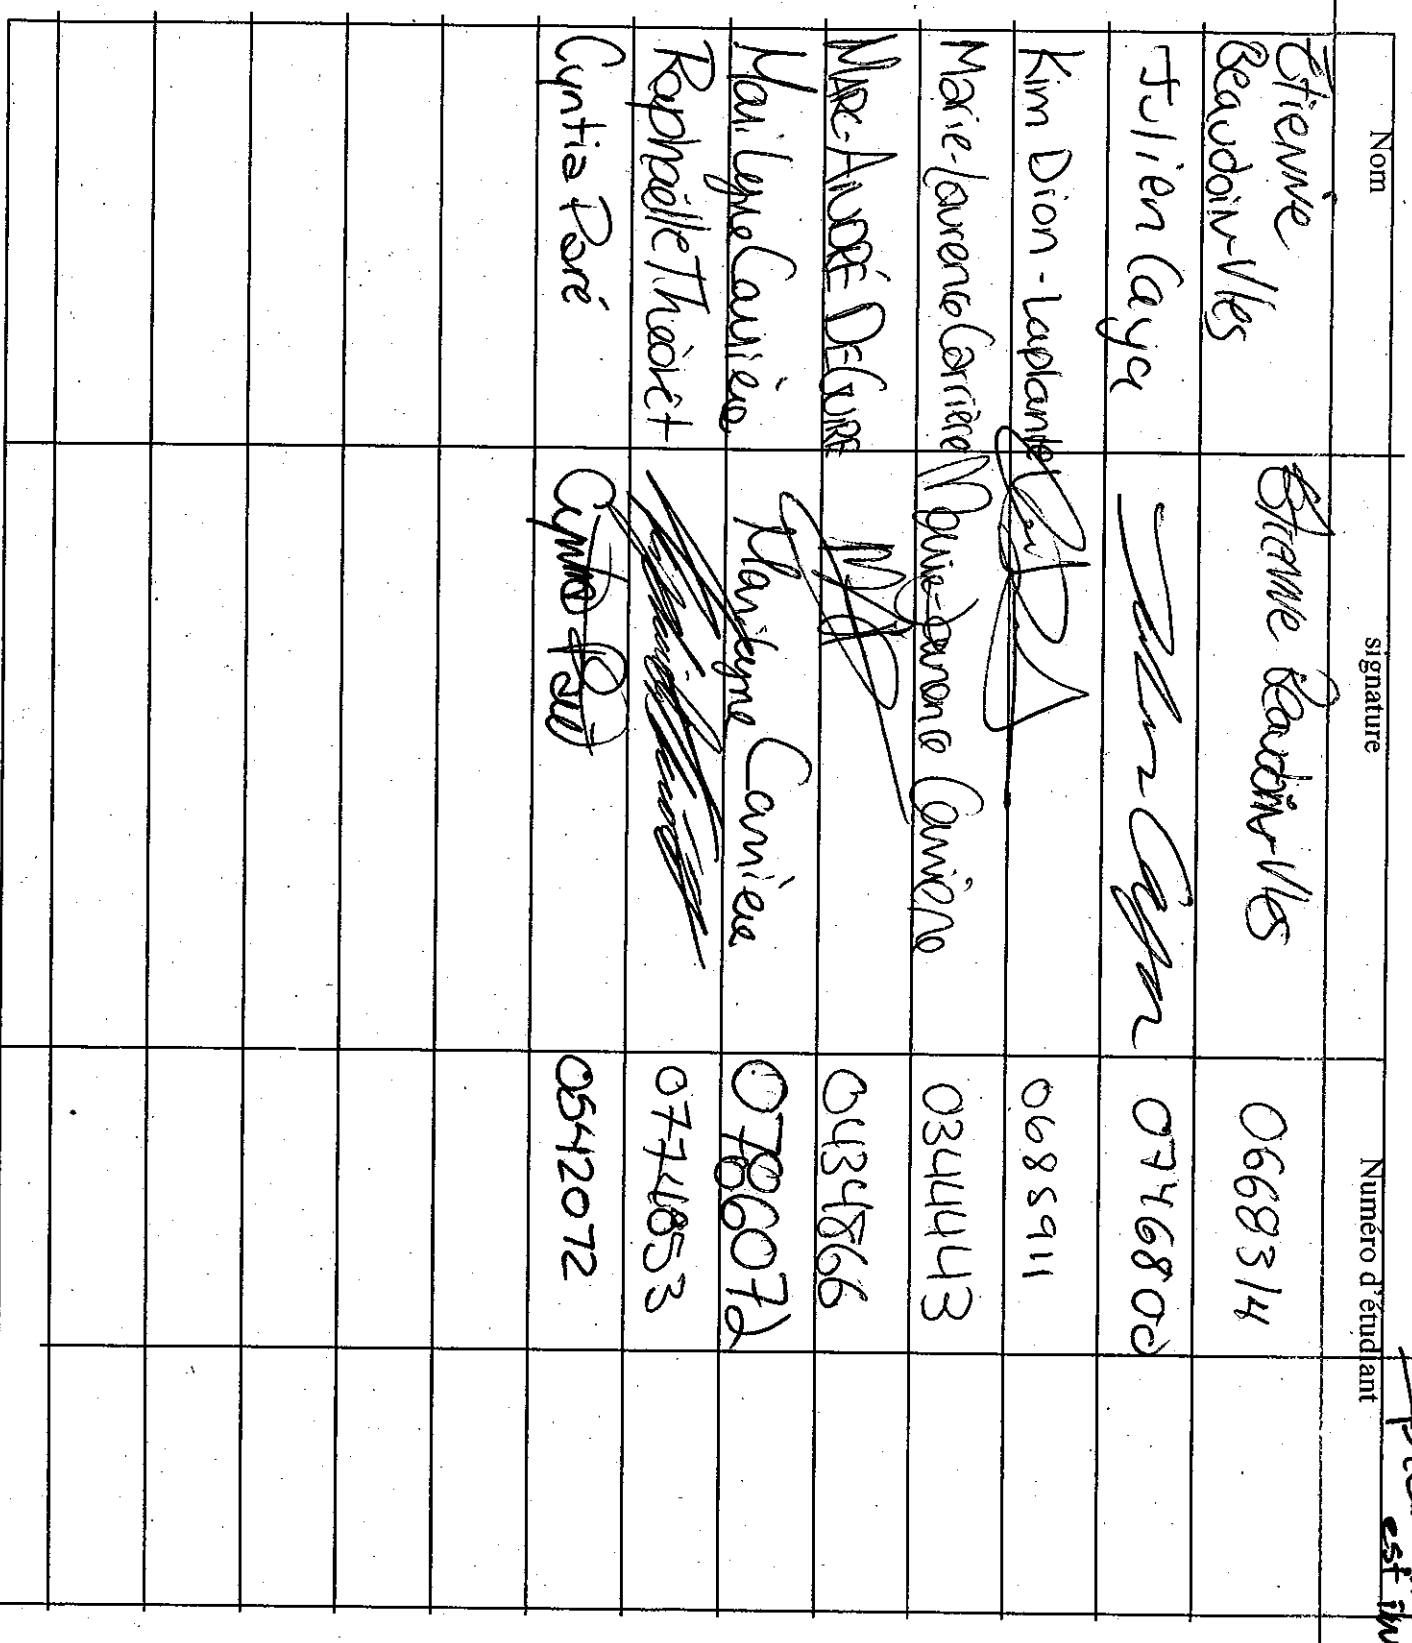 est
Nom signature Numéro d'étudiant
Étienne
Beaudoin-Vles Étienne Beaudoin-Vles 0668314
Julien Caya 0746800
Kim Dion-Laplante 0685911
Marie-Laurence Carrière Marie-Laurence Carrière 0344443
MARC-ANDRÉ DEGUIRE 0434866
Marilyne Carrière Marilyne Carrière
Raphaëlle Théorêt 0774853
Cyntia Paré Cyntia Paré 0542072